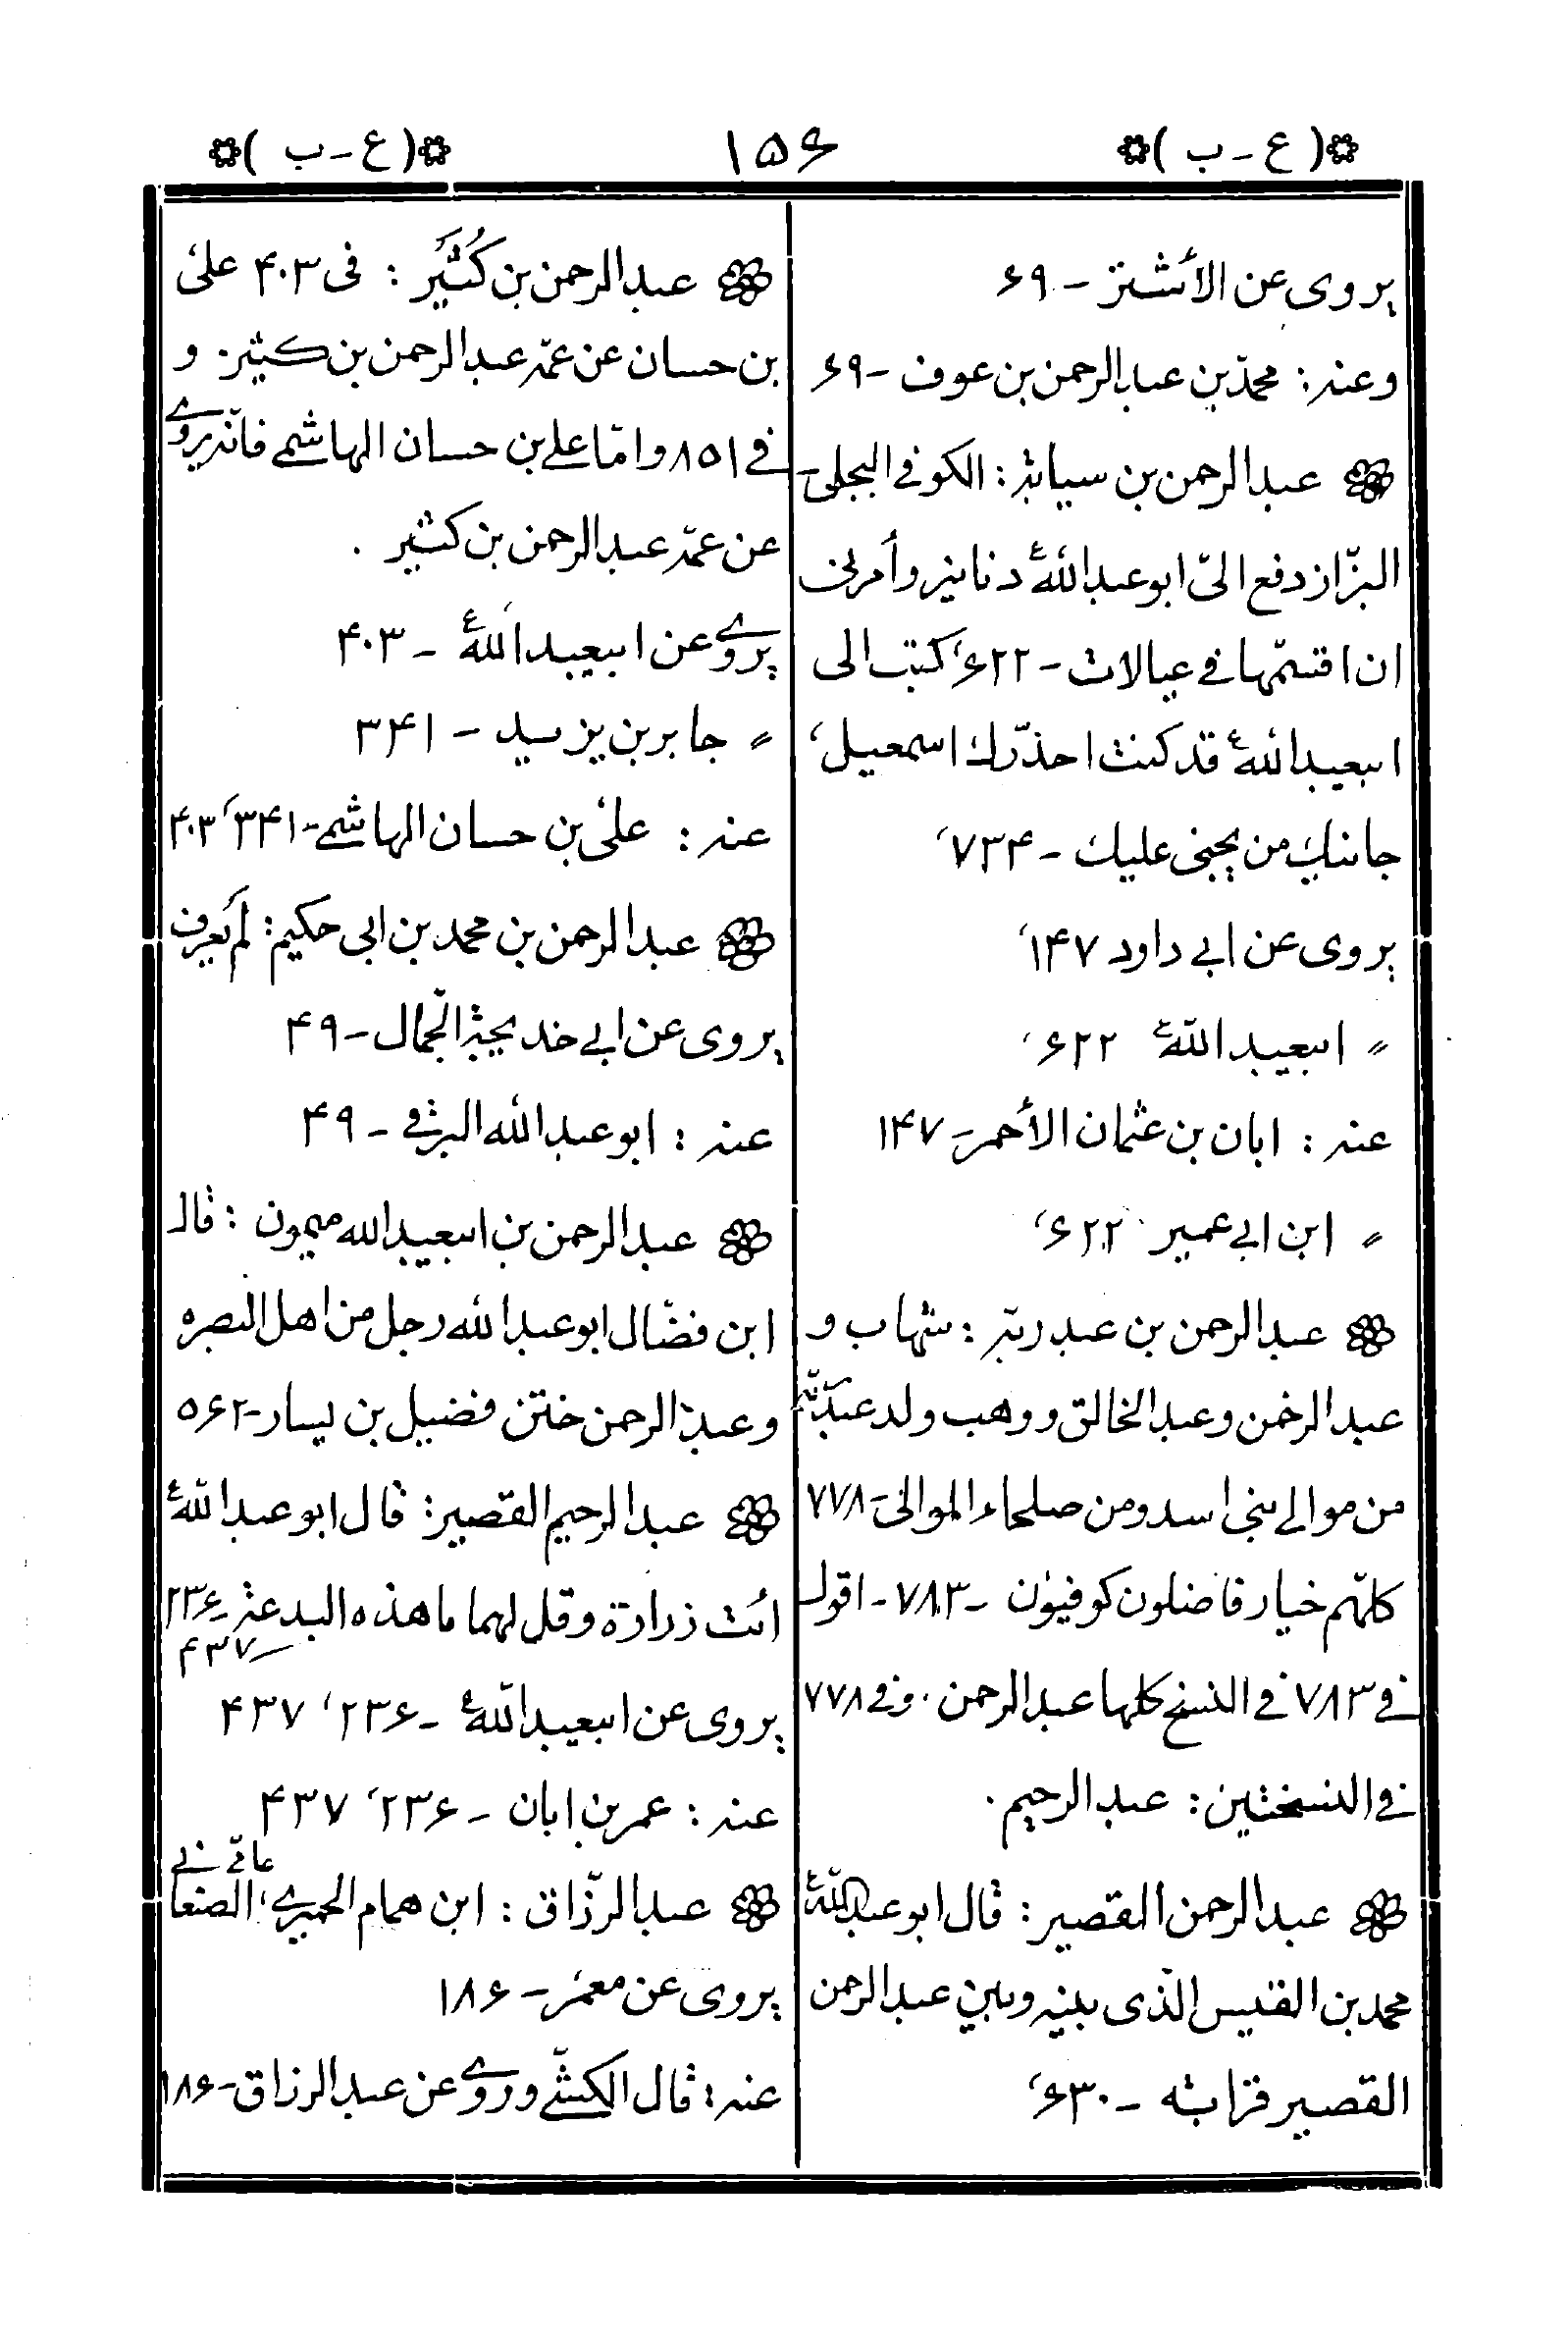 (ع - ب)
۱۵۶
(ع - ب)
يروى عن الأشتر - ۶۹
وعنه: محمد بن عبدالرحمن بن عوف - ۶۹
عبدالرحمن بن سيابة: الكوفي البجلي -
البزّاز دفع الىّ ابوعبداللهؑ دنانير وأمرنى
ان اقسّمها في عيالات - ۶۲۲، كتب الى
ابيعبداللهؑ قد كنت احذّرك اسمعيل،
جانيك من يجنى عليك - ۷۳۴،
يروى عن ابي داود ۱۴۷،
〃 ابيعبداللهؑ ۶۲۲،
عنه: ابان بن عثمان الأحمر - ۱۴۷
〃 ابن ابي عمير ۶۲۲،
عبدالرحمن بن عبد ربّه: شهاب و
عبدالرحمن وعبدالخالق ووهب ولد عبدربّه
من موالي بنى اسد ومن صلحاء الموالى - ۷۷۸
كلهّم خيار فاضلون كوفيون - ۷۸۳ - اقول
في ۷۸۳ في النسخ كلها عبدالرحمن. وفي ۷۷۸
في النسختين: عبدالرحيم.
عبدالرحمن القصير: قال ابوعبداللهؑ
محمد بن القيس الذى بينه وبين عبدالرحمن
القصير قرابة - ۶۳۰،
عبدالرحمن بن كُثَيّر: فى ۴۰۳ علىّ
بن حسان عن عمّه عبدالرحمن بن كثير. و
في ۸۵۱ وامّا علي بن حسان الهاشمي فانّه يروي
عن عمّه عبدالرحمن بن كثير.
يروي عن ابيعبداللهؑ - ۴۰۳
〃 جابر بن يزيد - ۳۴۱
عنه: علىّ بن حسان الهاشمي - ۳۴۱، ۴۰۳
عبدالرحمن بن محمد بن ابى حكيم: لم يُعرف
يروى عن ابي خديجة الجمّال - ۴۹
عنه: ابو عبدالله البرقي - ۴۹
عبدالرحمن بن ابيعبدالله ميمون: قال
ابن فضّال ابوعبدالله رجل من اهل البصره
وعبدالرحمن ختن فضيل بن يسار - ۵۶۲
عبدالرحيم القصير: قال ابوعبداللهؑ
ائت زرارة وقل لهما ما هذه البدعة - ۲۳۶
- ۴۳۷
يروى عن ابيعبداللهؑ - ۲۳۶، ۴۳۷
عنه: عمر بن ابان - ۲۳۶، ۴۳۷
عبدالرزّاق: ابن همام الحميري، الصنعاني
يروى عن معمّر - ۱۸۶
عنه: قال الكشّي وروي عن عبدالرزاق - ۱۸۶